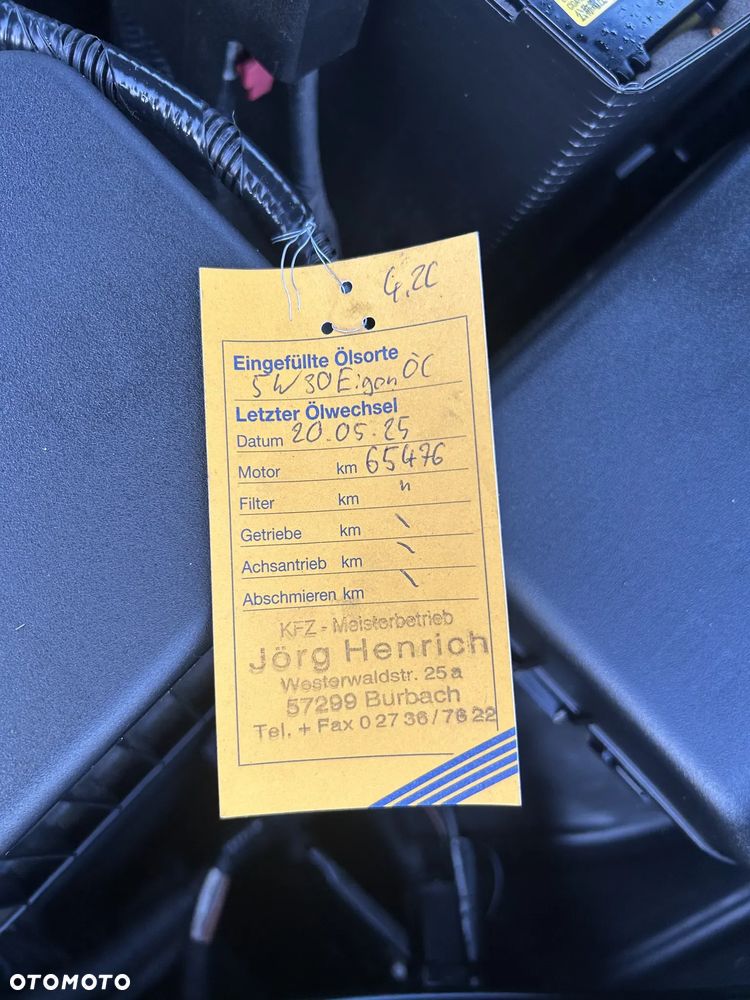 4,2l
Eingefüllte Ölsorte
5W30 Eigen Öl
Letzter Ölwechsel
Datum 20.05.25
Motor km 65476
Filter km "
Getriebe km \
Achsantrieb km \
Abschmieren km \
KFZ - Meisterbetrieb
Jörg Henrich
Westerwaldstr. 25a
57299 Burbach
Tel. + Fax 0 27 36 / 76 22
OTOMOTO